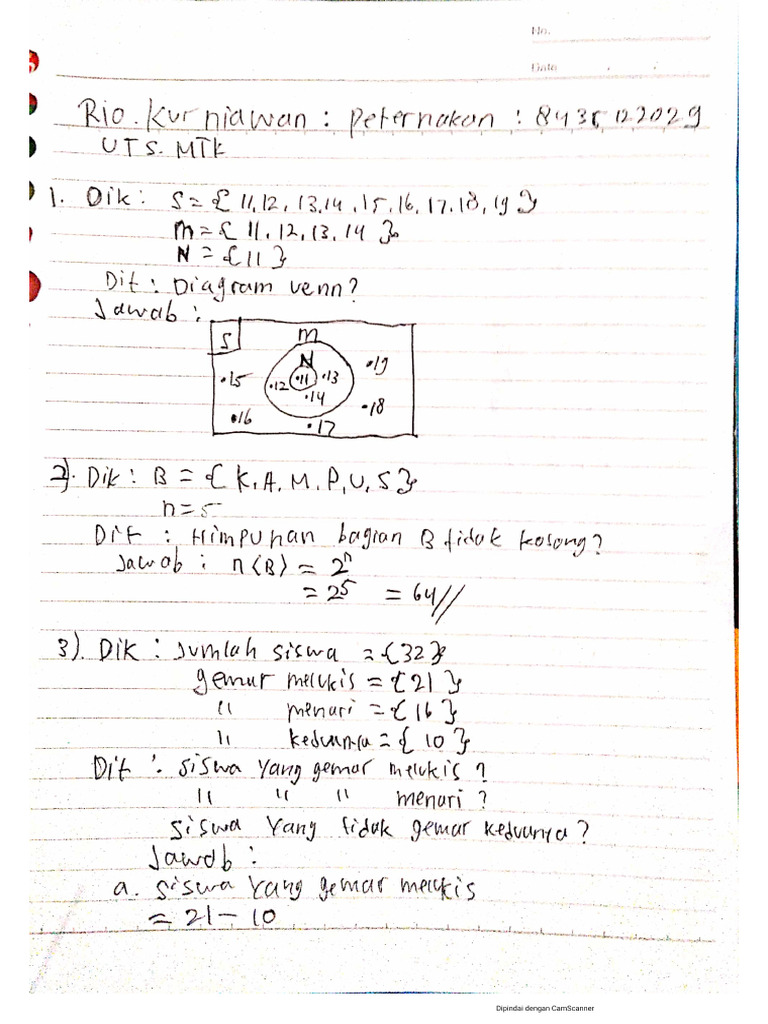 No.
Date
Rio. Kurniawan : Peternakan : 8435122029
UTS. MTK
1. Dik : S = { 11, 12, 13, 14, 15, 16, 17, 18, 19 }
M = { 11, 12, 13, 14 }
N = { 11 }
Dit : Diagram venn ?
Jawab :
S M
N •19
•15 •12 •11 •13
•14 •18
•16 •17
2). Dik : B = { K, A, M, P, U, S }
n = 5
Dit : Himpunan bagian B tidak kosong ?
Jawab : n (B) = 2ⁿ
= 2⁵ = 64 //
3). Dik : Jumlah siswa = {32}
gemar melukis = {21}
" menari = {16}
" keduanya = {10}
Dit : siswa yang gemar melukis ?
" " " menari ?
siswa yang tidak gemar keduanya ?
Jawab :
a. siswa yang gemar melukis
= 21 - 10
Dipindai dengan CamScanner